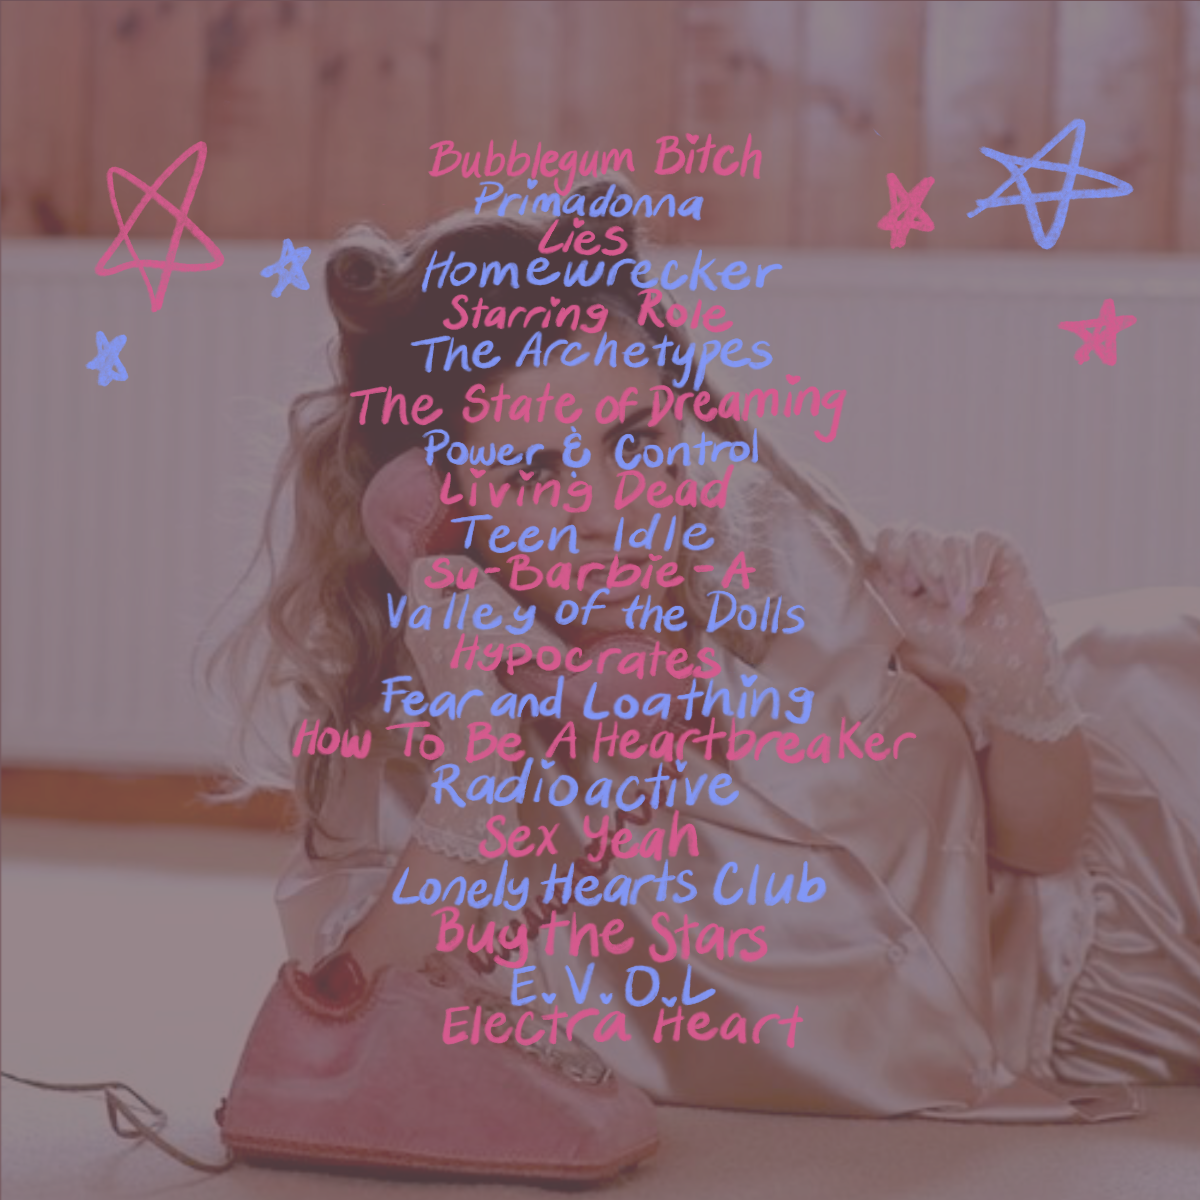 Bubblegum Bitch
Primadonna
Lies
Homewrecker
Starring Role
The Archetypes
The State of Dreaming
Power & Control
Living Dead
Teen Idle
Su-Barbie-A
Valley of the Dolls
Hypocrates
Fear and Loathing
How To Be A Heartbreaker
Radioactive
Sex Yeah
Lonely Hearts Club
Buy the Stars
E.V.O.L
Electra Heart